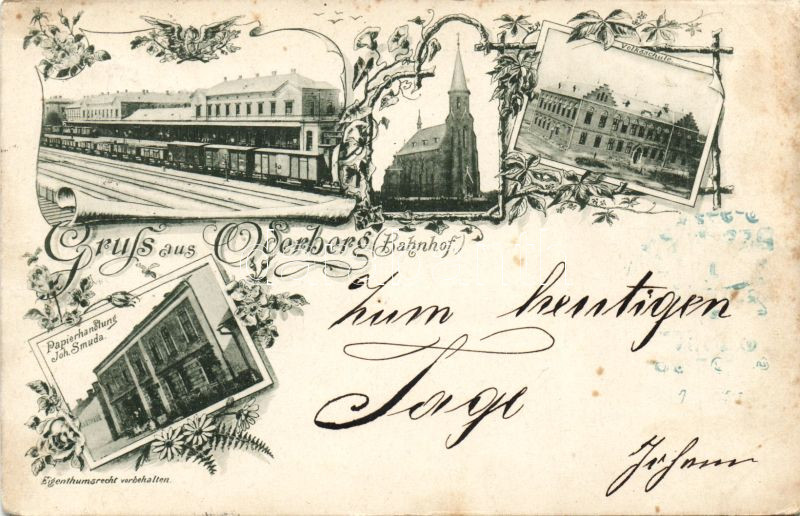 Volksschule
Gruss aus Oderberg (Bahnhof)
Papierhandlung
Joh. Smuda.
Zum heutigen
Tage
Johann
Eigenthumsrecht vorbehalten.